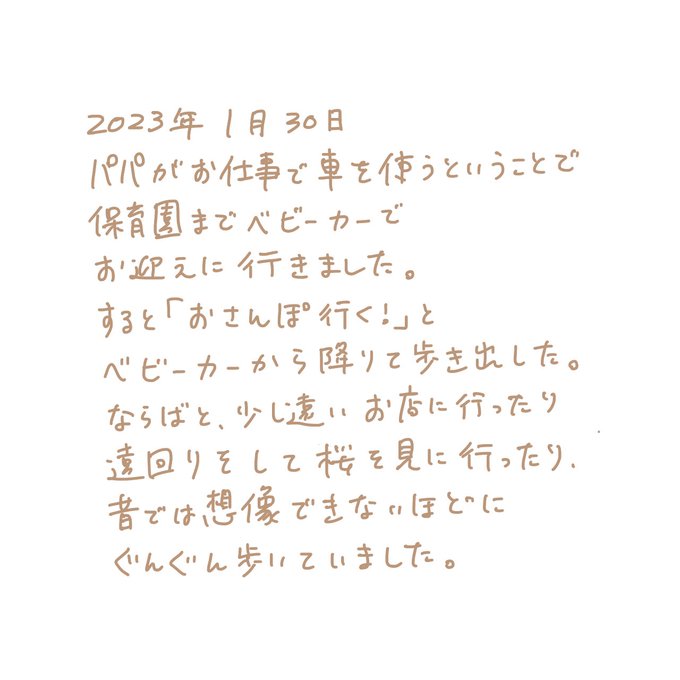 2023年 1月 30日
パパがお仕事で車を使うということで
保育園までベビーカーで
お迎えに行きました。
すると「おさんぽ行く!」と
ベビーカーから降りて歩き出した。
ならばと、少し遠いお店に行ったり
遠回りをして桜を見に行ったり、
昔では想像できないほどに
ぐんぐん歩いていました。